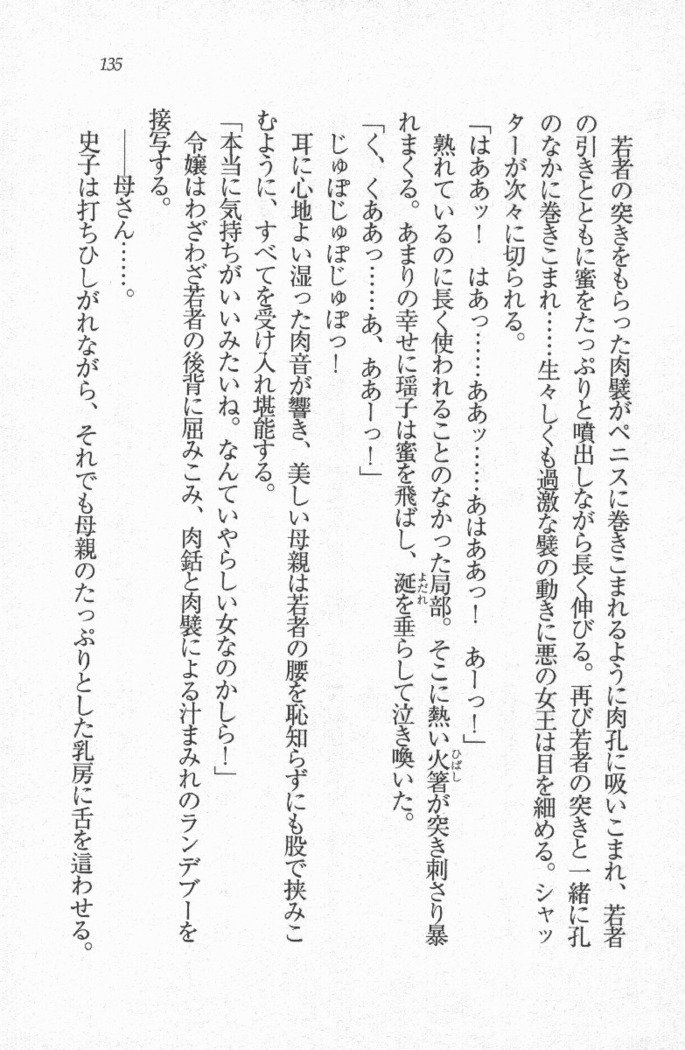 135
若者の突きをもらった肉襞がペニスに巻きこまれるように肉孔に吸いこまれ、若者
の引きとともに蜜をたっぷりと噴出しながら長く伸びる。再び若者の突きと一緒に孔
のなかに巻きこまれ……生々しくも過激な襞の動きに悪の女王は目を細める。シャッ
ターが次々に切られる。
「はああッ！　はあっ……ああッ……あはああっ！　あーっ！」
熟れているのに長く使われることのなかった局部。そこに熱い火箸(ひばし)が突き刺さり暴
れまくる。あまりの幸せに瑶子は蜜を飛ばし、涎(よだれ)を垂らして泣き喚いた。
「く、くああっ……あ、ああーっ！」
じゅぽじゅぽじゅぽっ！
耳に心地よい湿った肉音が響き、美しい母親は若者の腰を恥知らずにも股で挟みこ
むように、すべてを受け入れ堪能する。
「本当に気持ちがいいみたいね。なんていやらしい女なのかしら！」
令嬢はわざわざ若者の後背に屈みこみ、肉銛と肉襞による汁まみれのランデブーを
接写する。
――母さん……。
史子は打ちひしがれながら、それでも母親のたっぷりとした乳房に舌を這わせる。